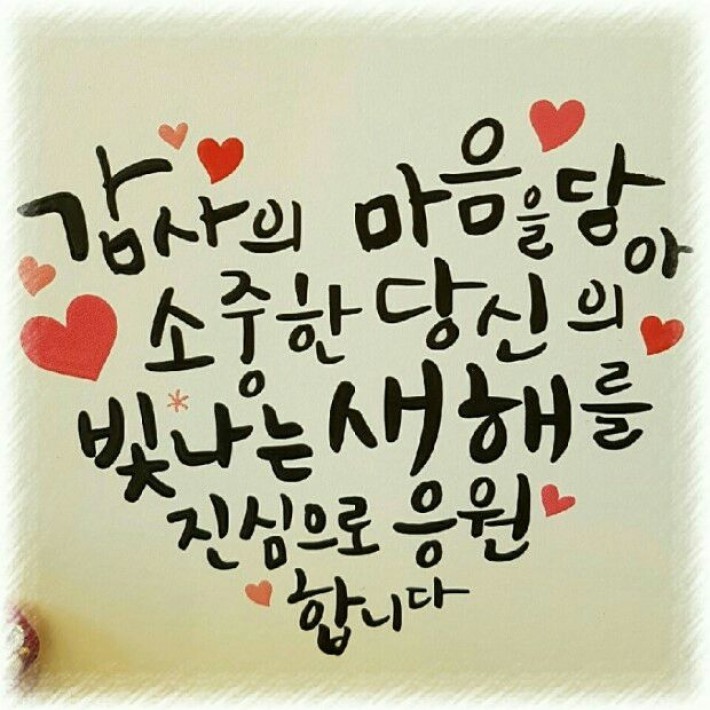 감사의 마음을담아
소중한 당신의
빛나는 새해를
진심으로 응원
합니다